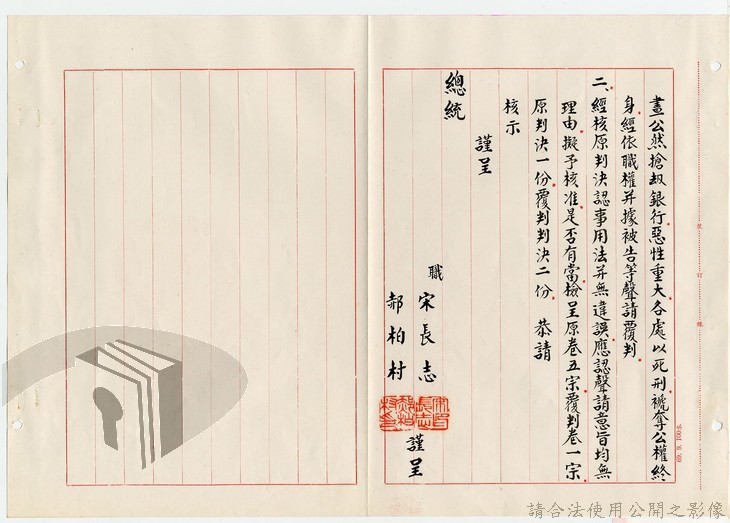 畫公然搶劫銀行惡性重大各處以死刑褫奪公權終
身經依職權并據被告等聲請覆判
二、經核原判決認事用法并無違誤應認聲請意旨均無
理由擬予核准是否有當檢呈原卷五宗覆判卷一宗
原判決一份覆判判決二份 恭請
核示
謹呈
總統
職 宋長志
郝柏村 謹呈
裝訂線
請合法使用公開之影像